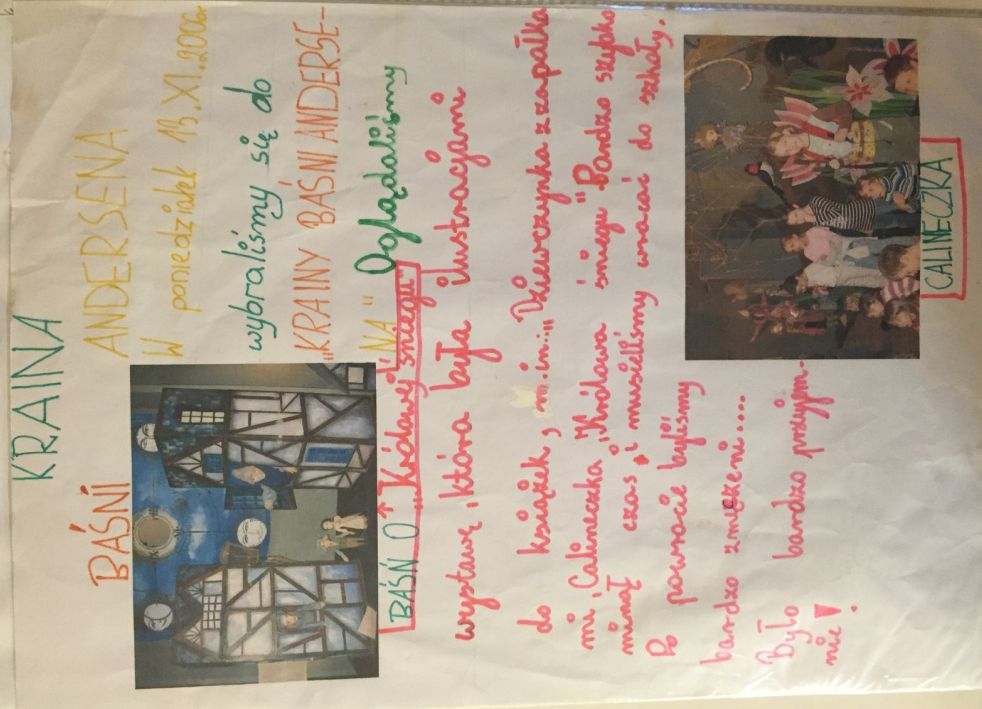 KRAINA
BAŚNI
ANDERSENA
W poniedziałek 13.XI.2006r
wybraliśmy się do
"KRAINY BAŚNI ANDERSE-
NA" Oglądaliśmy
BAŚŃ O "Królowej śniegu"
wystawę, która była ilustracjami
do książek, m.in. "Dziewczynka z zapałka
mi, Calineczka, "Królowa śniegu" Bardzo szybko
minął czas i musieliśmy wracać do szkoły.
Po powrocie byliśmy
bardzo zmęczeni...
Było bardzo przyjem-
nie!
CALINECZKA